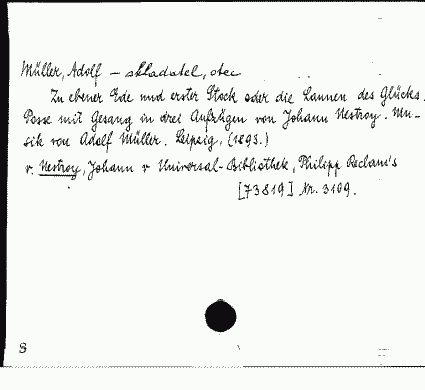 Müller, Adolf – skladatel, otec
Zu ebener Erde und erster Stock oder die Launen des Glücks.
Posse mit Gesang in drei Aufzügen von Johann Nestroy. Mu-
sik von Adolf Müller. Leipzig, (1893.)
v. Nestroy, Johann v Universal-Bibliothek, Philipp Reclam's
[73819] Nr. 3109.
S